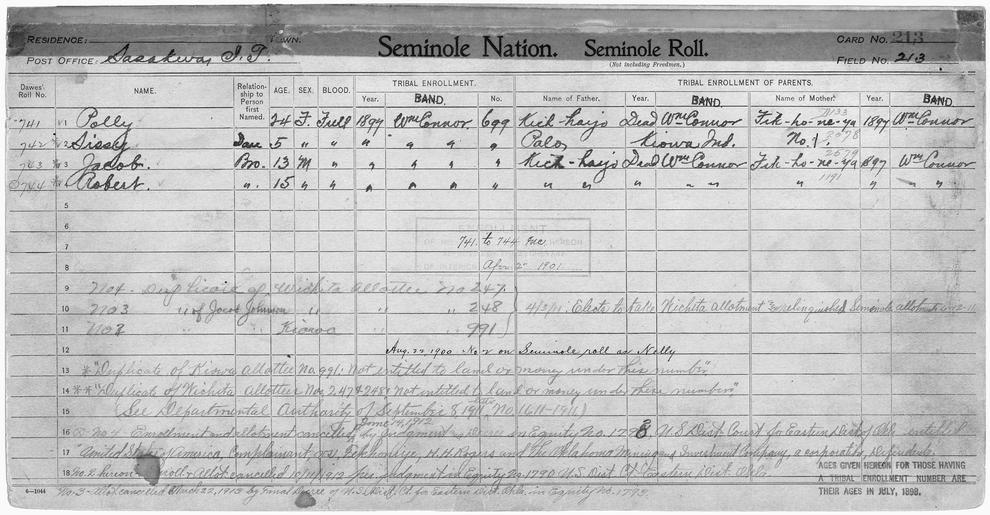 RESIDENCE: TOWN. Seminole Nation. Seminole Roll. CARD NO. 213
POST OFFICE: Sasakwa, I.T. (Not including Freedmen.) FIELD NO. 213
Dawes' Roll No. NAME. Relationship to Person first Named. AGE. SEX. BLOOD. TRIBAL ENROLLMENT. TRIBAL ENROLLMENT OF PARENTS.
Year. BAND. No. Name of Father. Year. BAND. Name of Mother. Year. BAND.
741 1 Polly 24 F Full 1897 Wm Connor. 699 Kick-hajo Dead Wm Connor Fik-ho-ne-ya 1897 Wm Connor
742 2 Sissy Dau 5 " " " " " " Palo, Kiowa Ind. No. 1.
743 3 Jacob. Bro. 13 M " " " " " Kick-hajo Dead Wm Connor Fik-ho-ne-ya 1897 Wm Connor
744 4 Robert. " 15 " " " " " " " " " " " " " "
5
6
7 741 to 744 Inc.
8 Apr 2 1901
9 No4. Duplicate of Wichita allottee No 247
10 No3 " of Jacob Johnson " " 248 4/3/11. Elects to take Wichita allotment & relinquished Seminole allotment
11 No2 " " Kiowa " 991
12 Aug. 22 1900 - No 2 on Seminole roll as Nelly
13 * "Duplicate of Kiowa allottee No 991: Not entitled to land or money under this number"
14 ** "Duplicate of Wichita Allottee Nos 247 & 248: Not entitled to land or money under these numbers"
15 (See Departmental Authority of September 8 1911, No.
16 No 4 Enrollment and allotment cancelled June 14, 1912 by Judgment & Decree in Equity No. 1798, U.S. Dist. Court for Eastern Dist of Okla entitled
17 "United States of America, Complainant vs. H.H. Rogers and the Oklahoma Mining and Investment Company, a corporation, Defendants.
18 No. 2 hereon enroll & Allot cancelled per judgment in Equity No. 1790 U.S. Dist Ct Eastern Dist Okla.
AGES GIVEN HEREON FOR THOSE HAVING
A TRIBAL ENROLLMENT NUMBER ARE
THEIR AGES IN JULY, 1898.
6-1044 No. 3 - Allot cancelled March 22, 1913 by Final Decree of U.S. Dist. Ct. for Eastern Dist. Okla. in Equity No. 1793.